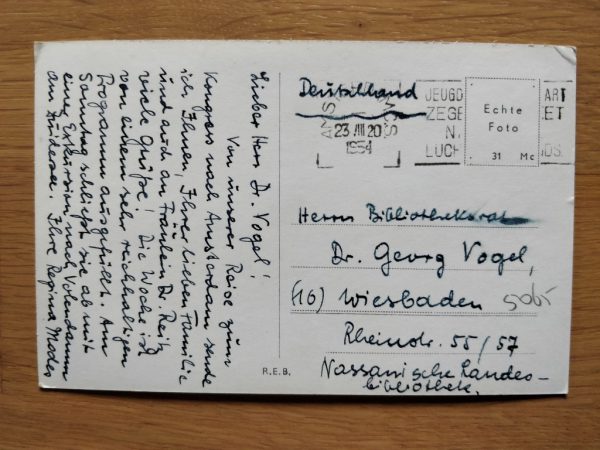 Lieber Herr Dr. Vogel!
Von unserer Reise zum
Kongress nach Amsterdam sende
ich, Ihnen, Ihrer lieben Familie
und auch an Fräulein Dr. Reitz
viele Grüße! Die Woche ist
von einem sehr reichhaltigen
Programm ausgefüllt. Am
Sonntag schließt sie ab mit
einer Exkursion nach Volendamm
am Zuidersee. Ihre Regina
Deutschland
23 VIII 20
1954
JEUGD
ZEGE
N.
LUCH
ART
ET
DS.
Echte
Foto
31 Mc
Herrn Bibliotheksrat
Dr. Georg Vogel,
(16) Wiesbaden
Rheinstr. 55/57
Nassauische Landes-
bibliothek.
R.E.B.